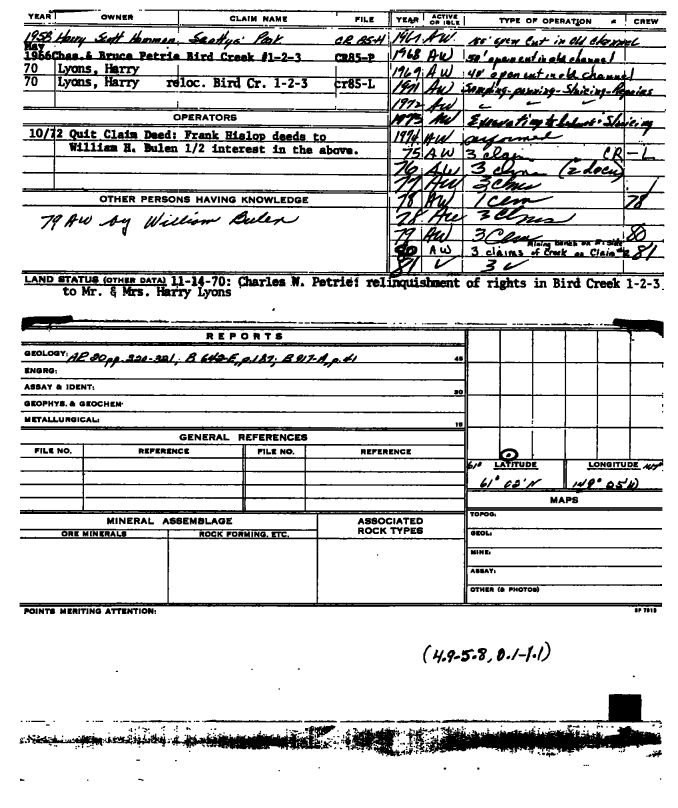 YEAR OWNER CLAIM NAME FILE
1958 Harry Scott Hammon, Scottys' Pook CR 85-H
May
1966 Chas. & Bruce Petrie Bird Creek #1-2-3 CR85-P
70 Lyons, Harry
70 Lyons, Harry reloc. Bird Cr. 1-2-3 cr85-L
OPERATORS
10/72 Quit Claim Deed: Frank Hislop deeds to
William H. Bulen 1/2 interest in the above.
OTHER PERSONS HAVING KNOWLEDGE
79 AW by William Bulen
YEAR ACTIVE OR IDLE TYPE OF OPERATION CREW
1967 AW open cut in old channel
1968 AW 50' open cut in old channel
1969 AW 40' open cut in old channel
1971 AW Sampling-panning-Sluicing-Repairs
1972 AW " " "
1973 AW Excavating to bedrock & Sluicing
1974 AW performed
75 AW 3 claims CR-L
76 AW 3 clms (2 docu)
77 AW 3 clms
78 AW 1 clm 78
78 AW 3 clms
79 AW 3 clms 80
80 AW 3 claims Mining bench on N. side of Creek on Claim #2 81
81 ✓ 3 ✓
LAND STATUS (OTHER DATA) 11-14-70: Charles W. Petrie: relinquisment of rights in Bird Creek 1-2-3
to Mr. & Mrs. Harry Lyons
REPORTS
GEOLOGY: AR 20 pp. 320-321; B 642-E, p.187; B 917-A, p.41 45
ENGRG:
ASSAY & IDENT: 30
GEOPHYS. & GEOCHEM-
METALLURGICAL: 15
GENERAL REFERENCES
FILE NO. REFERENCE FILE NO. REFERENCE
61° LATITUDE LONGITUDE 149°
61° 02' N 149° 05' W
MAPS
TOPOG:
GEOL:
MINE:
ASSAY:
OTHER (& PHOTOS)
MINERAL ASSEMBLAGE ASSOCIATED ROCK TYPES
ORE MINERALS ROCK FORMING, ETC.
POINTS MERITING ATTENTION: SP 7913
(4.9-5.8, 0.1-1.1)